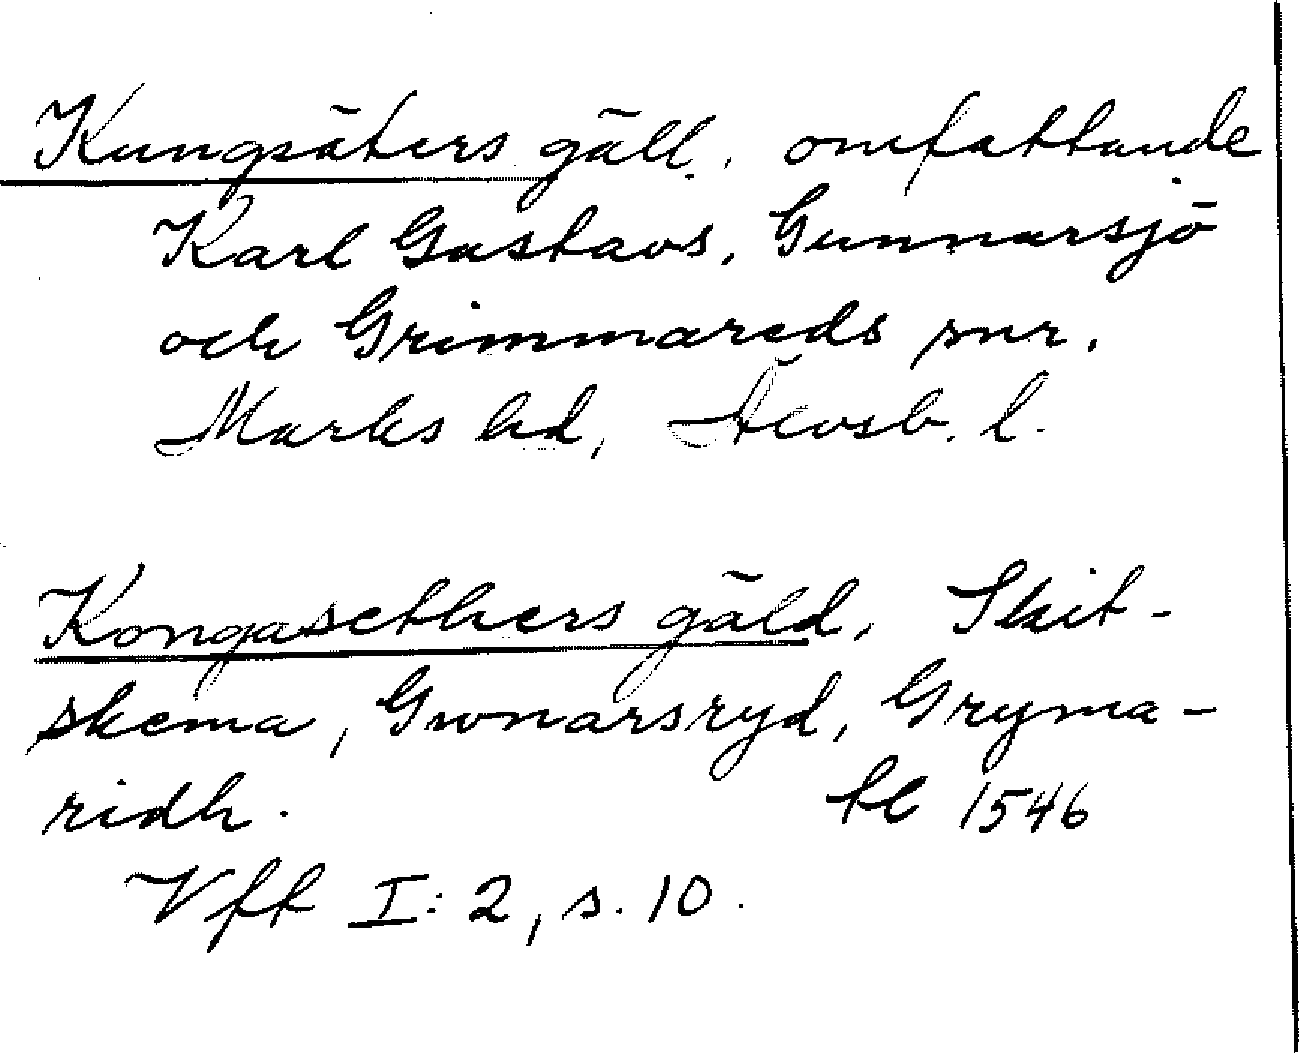 Kungsäters gäll, omfattande
Karl Gustavs, Gunnarsjö
och Grimmareds snr,
Marks hd, Älvsb. l.
Kongasethers gäld, Skit-
skema, Gwnarsryd, Gryma-
ridh. 1546
Vft I:2, s. 10.